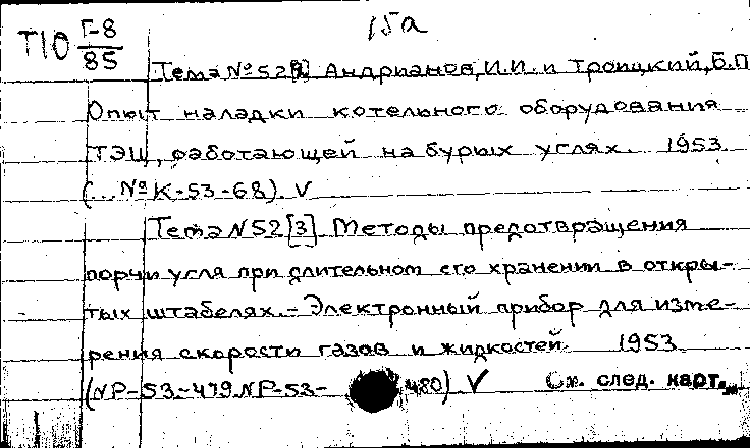 15а
Т10 Г-8/85
Тема № 52[2] Андрианов, И.И. и Троицкий, Б.П
Опыт наладки котельного оборудования
ТЭЦ, работающей на бурых углях. 1953
(... № К-53-68) V
Тема N 52 [3]. Методы предотвращения
порчи угля при длительном его хранении в откры-
тых штабелях. - Электронный прибор для изме-
рения скорости газов и жидкостей. 1953
(NР-53-479, NР-53- 480) V См. след. карт.